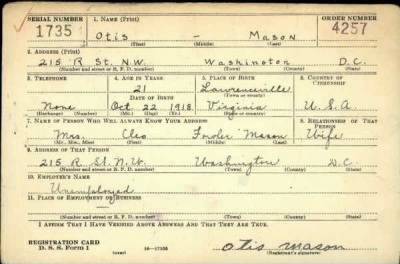 SERIAL NUMBER 1. NAME (Print) ORDER NUMBER
1735 Otis - Mason 4257
(First) (Middle) (Last)
2. ADDRESS (Print)
215 R St. N.W. Washington D.C.
(Number and street or R. F. D. number) (Town) (County) (State)
3. TELEPHONE 4. AGE IN YEARS 5. PLACE OF BIRTH 6. COUNTRY OF CITIZENSHIP
21 Lawrenceville
DATE OF BIRTH (Town or county)
None Oct 22 1918 Virginia U.S.A
(Exchange) (Number) (Mo.) (Day) (Yr.) (State or country)
7. NAME OF PERSON WHO WILL ALWAYS KNOW YOUR ADDRESS 8. RELATIONSHIP OF THAT PERSON
Mrs. Cleo Mason Wife
(Mr., Mrs., Miss) (First) (Middle) (Last)
9. ADDRESS OF THAT PERSON
215 R St. N.W. Washington D.C.
(Number and street or R. F. D. number) (Town) (County) (State)
10. EMPLOYER'S NAME
Unemployed
11. PLACE OF EMPLOYMENT OR BUSINESS
(Number and street or R. F. D. number) (Town) (County) (State)
I AFFIRM THAT I HAVE VERIFIED ABOVE ANSWERS AND THAT THEY ARE TRUE.
REGISTRATION CARD
D. S. S. Form 1 (over) 16-17105 Otis Mason
(Registrant's signature)